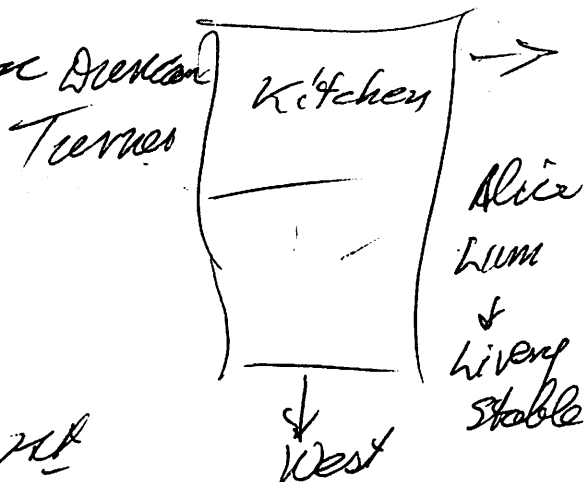 Duncan
Turner
Kitchen
Alice
Lum
Livery
Stable
West